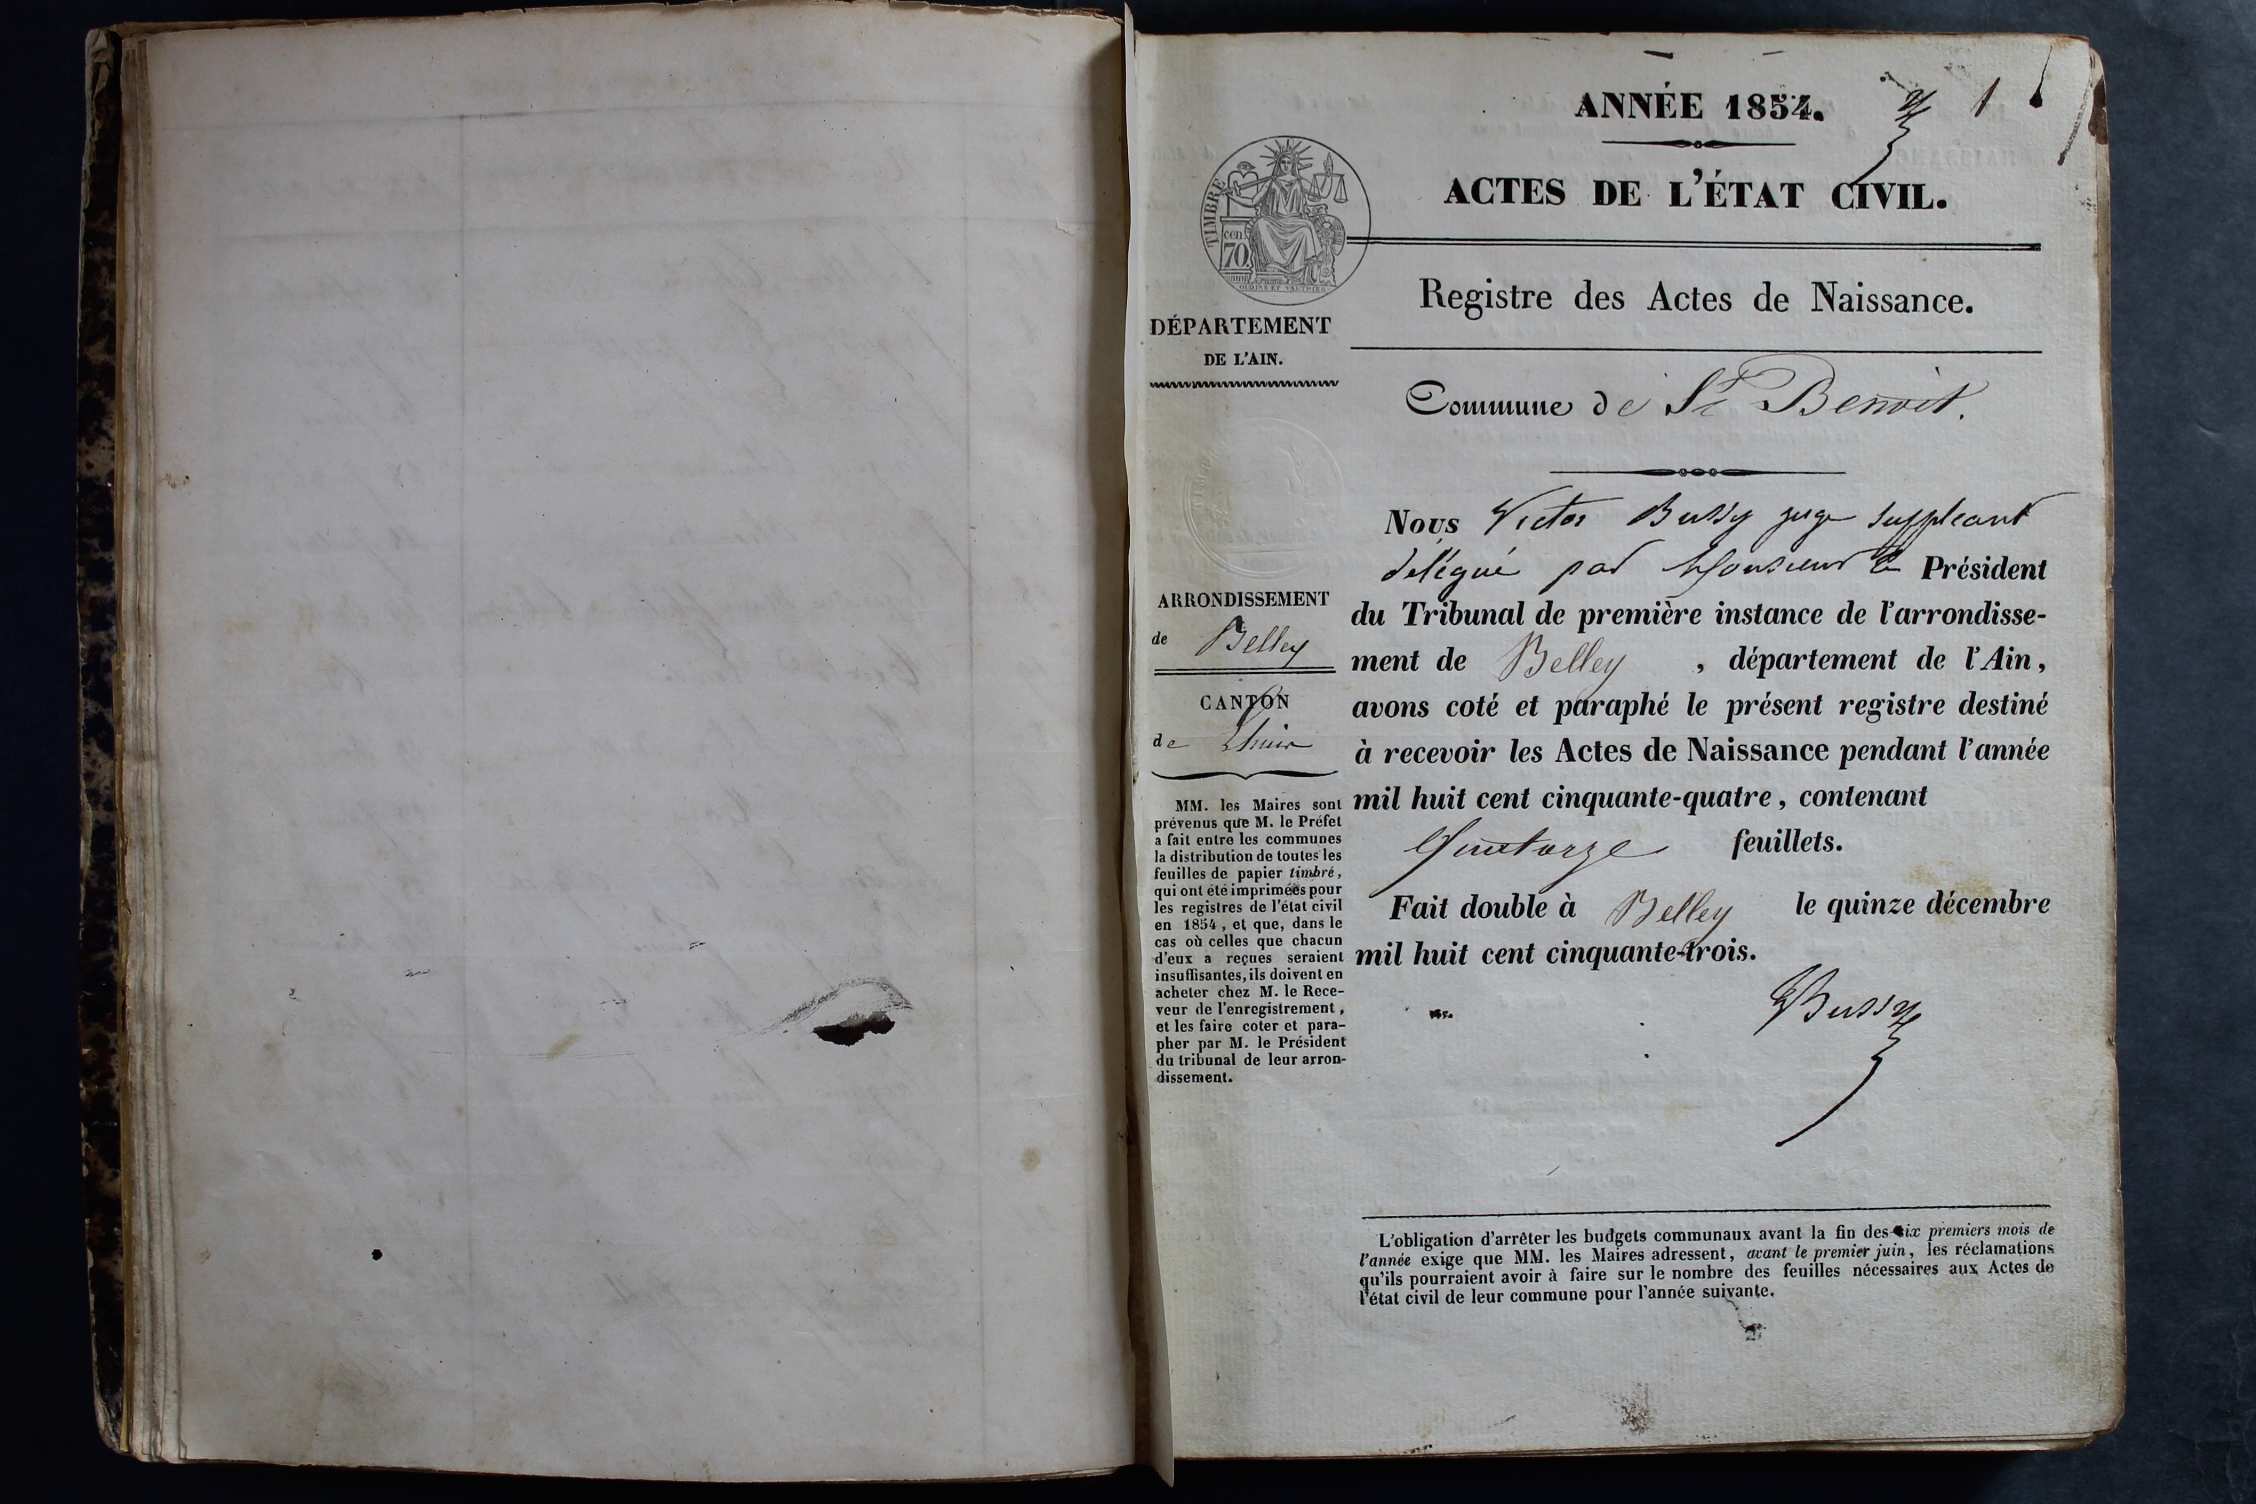 ANNÉE 1854.
1
ACTES DE L'ÉTAT CIVIL.
TIMBRE
cen.
70.
Registre des Actes de Naissance.
DÉPARTEMENT
DE L'AIN.
Commune de St Benoit.
ARRONDISSEMENT
de Belley
CANTON
de Lhuis
MM. les Maires sont
prévenus que M. le Préfet
a fait entre les communes
la distribution de toutes les
feuilles de papier timbré,
qui ont été imprimées pour
les registres de l'état civil
en 1854, et que, dans le
cas où celles que chacun
d'eux a reçues seraient
insuffisantes, ils doivent en
acheter chez M. le Rece-
veur de l'enregistrement,
et les faire coter et para-
pher par M. le Président
du tribunal de leur arron-
dissement.
Nous Victor Bussy juge suppléant
délégué par Monsieur le Président
du Tribunal de première instance de l'arrondisse-
ment de Belley, département de l'Ain,
avons coté et paraphé le présent registre destiné
à recevoir les Actes de Naissance pendant l'année
mil huit cent cinquante-quatre, contenant
feuillets.
Fait double à Belley le quinze décembre
mil huit cent cinquante-trois.
Bussy
L'obligation d'arrêter les budgets communaux avant la fin des six premiers mois de
l'année exige que MM. les Maires adressent, avant le premier juin, les réclamations
qu'ils pourraient avoir à faire sur le nombre des feuilles nécessaires aux Actes de
l'état civil de leur commune pour l'année suivante.